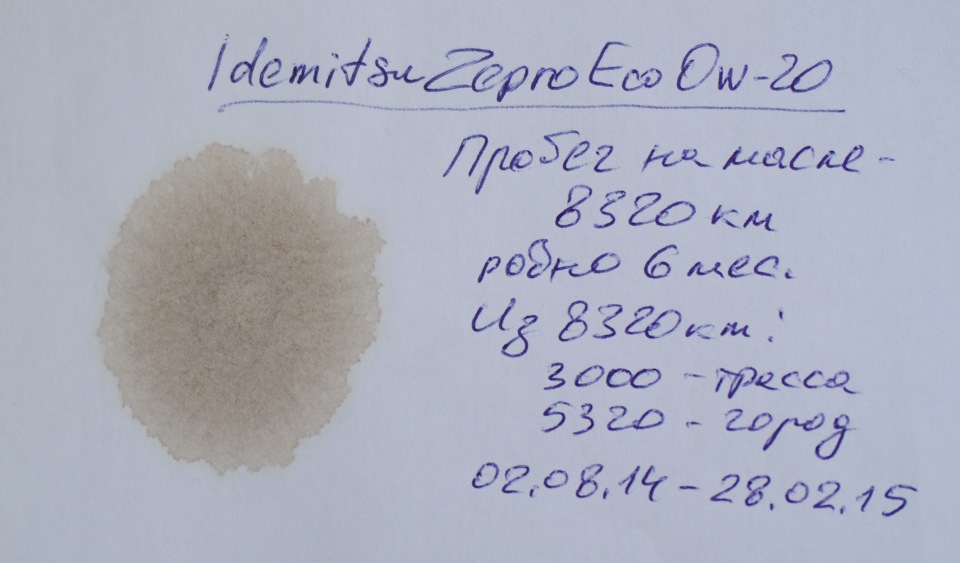 Idemitsu Zepro Eco 0w-20
Пробег на масле -
8320 км
ровно 6 мес.
Из 8320 км:
3000 - трасса
5320 - город
02.08.14 - 28.02.15